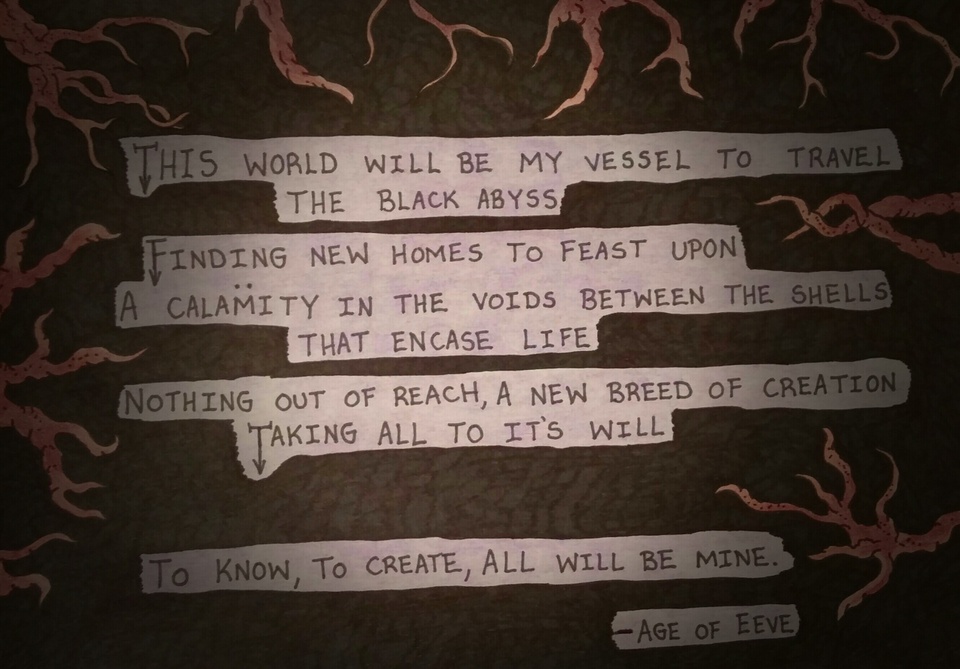 THIS WORLD WILL BE MY VESSEL TO TRAVEL
THE BLACK ABYSS
FINDING NEW HOMES TO FEAST UPON
A CALAM̈ITY IN THE VOIDS BETWEEN THE SHELLS
THAT ENCASE LIFE
NOTHING OUT OF REACH, A NEW BREED OF CREATION
TAKING ALL TO IT'S WILL
TO KNOW, TO CREATE, ALL WILL BE MINE.
-AGE OF EEVE